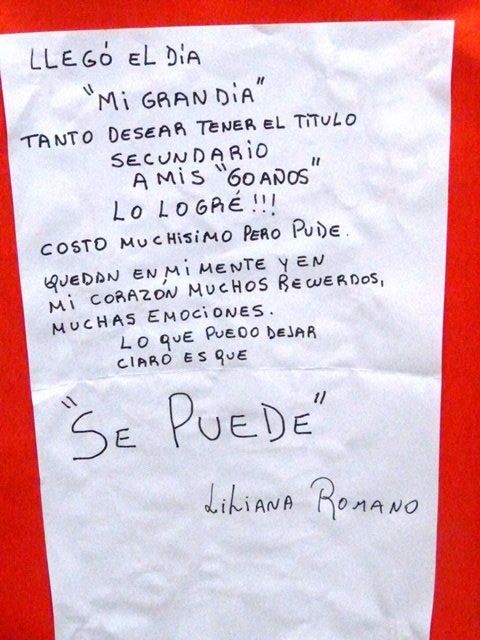 LLEGÓ EL DÍA
"MI GRAN DÍA"
TANTO DESEAR TENER EL TITULO
SECUNDARIO
A MIS "60 AÑOS"
LO LOGRÉ!!!
COSTO MUCHISIMO PERO PUDE.
QUEDAN EN MI MENTE Y EN
MI CORAZÓN MUCHOS RECUERDOS,
MUCHAS EMOCIONES.
LO QUE PUEDO DEJAR
CLARO ES QUE
"SE PUEDE"
LILIANA ROMANO